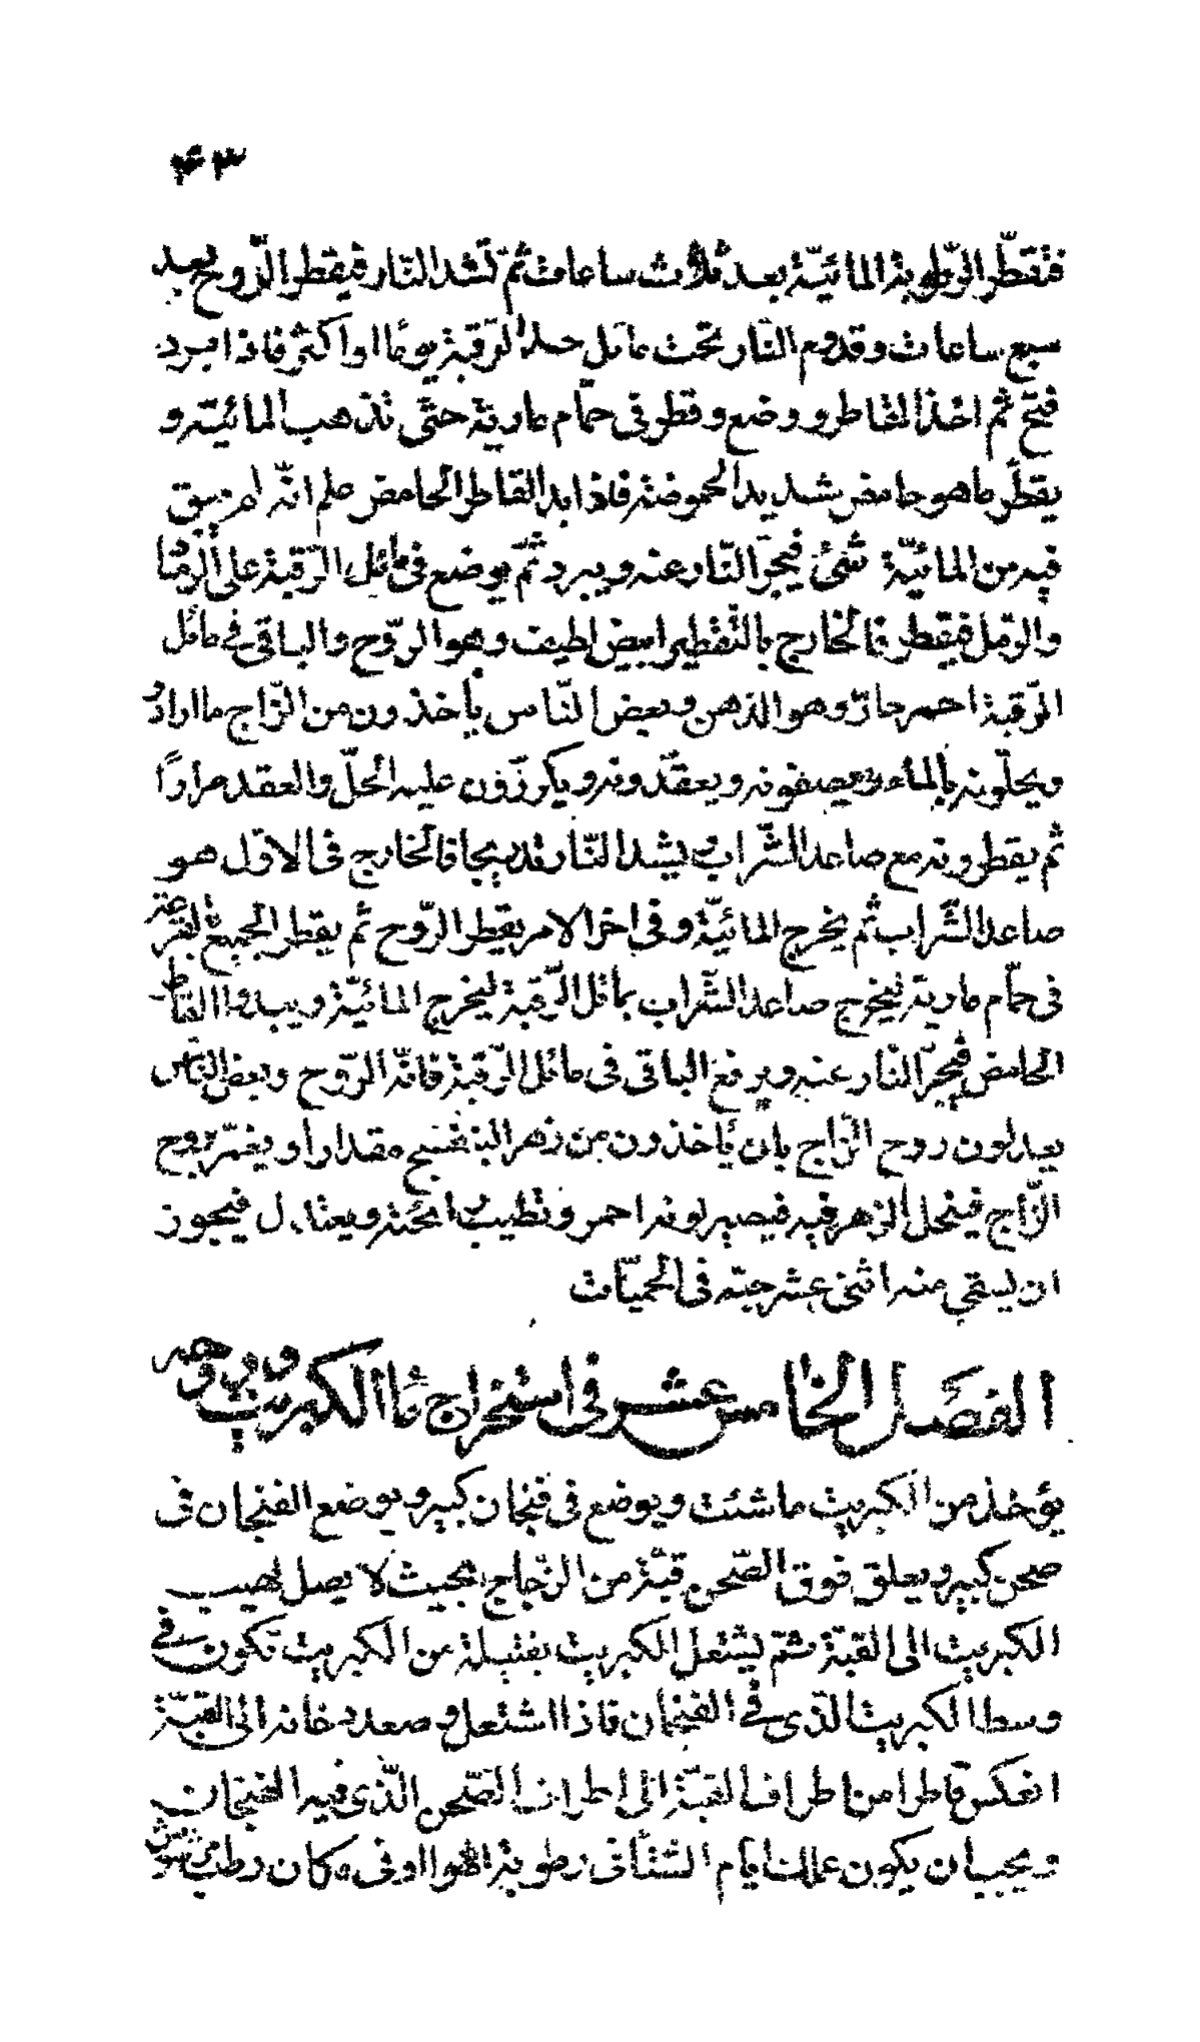 ۴۳
فتقطّر الرّطوبة المائيّة بعد ثلاث ساعات ثمّ تشد النّار فيقطر الرّوح بعد
سبع ساعات وقدوم النّار تحت مائل الرّقبة يومًا او اكثر فاذا برد
فتح ثم اخذ القاطر و وضع وقطر فى حمّام ماريّة حتّى تذهب المائيّة و
يقطّر ما هو حامض شديد الحموضة فاذا بدا القاطر الحامض علم انّه لم يبق
فيه من المائيّة شئ فيجرّ النّار عنه ويبرد ثمّ يوضع فى مائل الرّقبة على الرّماد
والرّمل فيقطر فالخارج بالتّقطير ابيض لطيف وهو الرّوح والباقى فى مائل
الرّقبة احمر حارّ وهو الدّهن وبعض النّاس يأخذون من الزّاج ما ارادوا
ويحلّونه بالماء ويصفونه ويعقّدونه ويكرّرون عليه الحلّ والعقد مرارًا
ثم يقطرونه مع صاعد الشّراب ويشد النّار تدريجا فالخارج فى الاوّل هو
صاعد الشّراب ثم يخرج المائيّة وفى اخر الامر يقطر الرّوح ثم يقطر الجميع بالقرعة
فى حمّام مارية ليخرج صاعد الشّراب بمائل الرّقبة ليخرج المائيّة ويبدوا القاطر
الحامض فيجرّ النّار عنه ويرفع الباقى فى مائل الرّقبة فانّه الرّوح وبعض النّاس
يعدلون روح الزّاج بان يأخذون من زهر البنفسج مقدارا ويغمّر بروح
الزّاج فينحل الزهر فيه فيصير لونه احمر وتطيب رائحته ويعتدل فيجوز
ان يسقي منه اثنى عشر حبّه فى الحميّات
الفصل الخامس عشر فى استخراج ماء الكبريت و روحه
يؤخذ من الكبريت ما شئت ويوضع فى فنجان كبير ويوضع الفنجان فى
صحن كبير ويعلق فوق الصّحن قبّة من الزّجاج بحيث لا يصل لهيب
الكبريت الى القبّة ثمّ يشتعل الكبريت بفتيلة من الكبريت تكون فى
وسط الكبريت الّذى فى الفنجان فاذا اشتعل وصعد دخانه الى القبّة
انعكس قاطرا من اطراف القبّة الى اطراف الصّحن الّذى فيه الفنجان
ويجب ان يكون عملك ايام الشتا فى رطوبة الهوا او فى مكان رطب